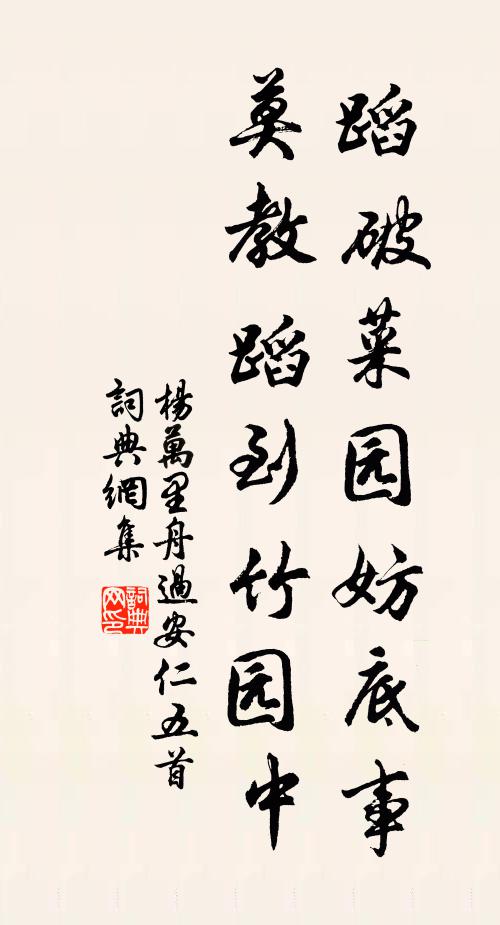 蹈破菜园妨底事
莫教蹈到竹园中
楊萬里舟過安仁五首
詞典網集
詞典网印